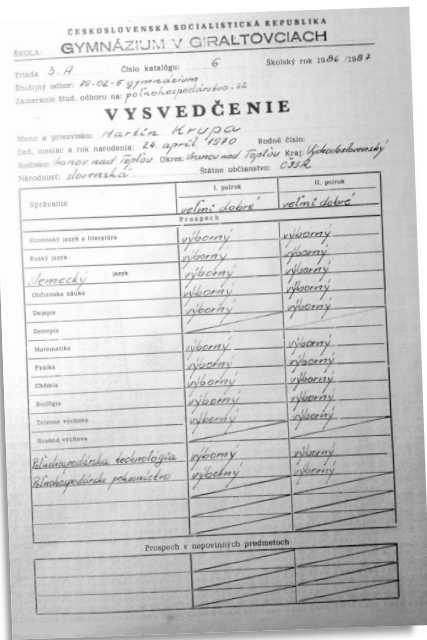 ČESKOSLOVENSKÁ SOCIALISTICKÁ REPUBLIKA
ŠKOLA: GYMNÁZIUM V GIRALTOVCIACH
Trieda 3. A Číslo katalógu: 6 Školský rok 1986/1987
Študijný odbor: 79-02-5 gymnázium
Zameranie štud. odboru na: poľnohospodárstvo-62
VYSVEDČENIE
Meno a priezvisko: Martin Krupa
Deň, mesiac a rok narodenia: 24. apríl 1970 Rodné číslo:
Rodisko: Vranov nad Topľou Okres: Vranov nad Topľou Kraj: Východoslovenský
Národnosť: slovenská Štátne občianstvo: ČSSR
I. polrok II. polrok
Správanie veľmi dobré veľmi dobré
Prospech
Slovenský jazyk a literatúra výborný výborný
Ruský jazyk výborný výborný
Nemecký jazyk výborný výborný
Občianska náuka výborný výborný
Dejepis výborný výborný
Zemepis
Matematika výborný výborný
Fyzika výborný výborný
Chémia výborný výborný
Biológia výborný výborný
Telesná výchova výborný výborný
Branná výchova
Poľnohospodárska technológia výborný výborný
Poľnohospodárske výborný výborný
Prospech v nepovinných predmetoch